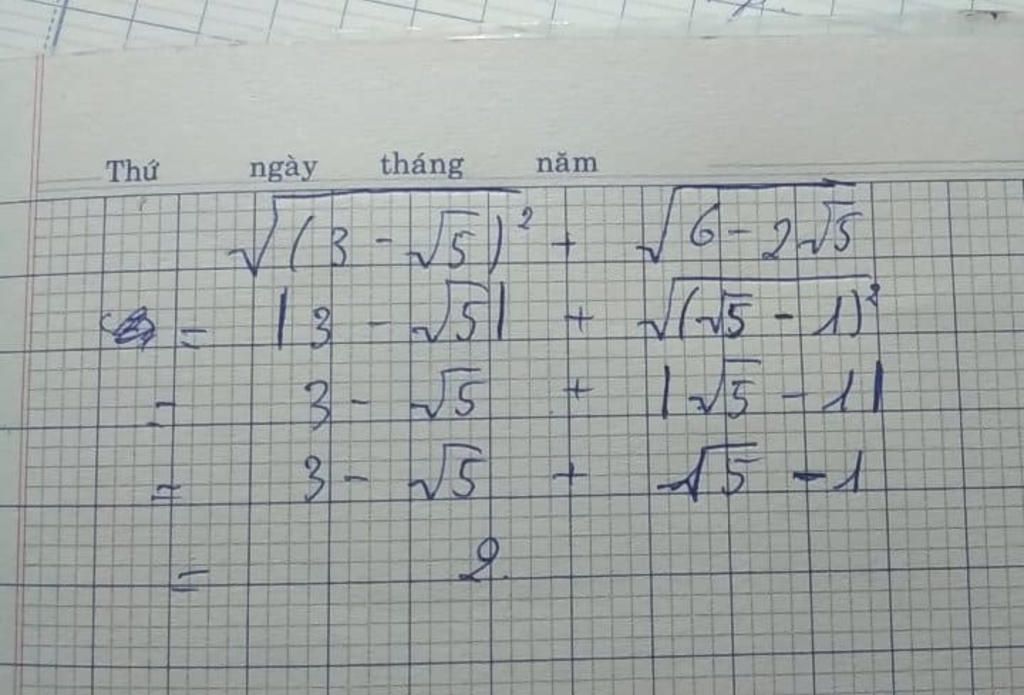 Thứ ngày tháng năm
√(3 - √5)² + √6 - 2√5
= |3 - √5| + √(√5 - 1)²
= 3 - √5 + |√5 - 1|
= 3 - √5 + √5 - 1
= 2